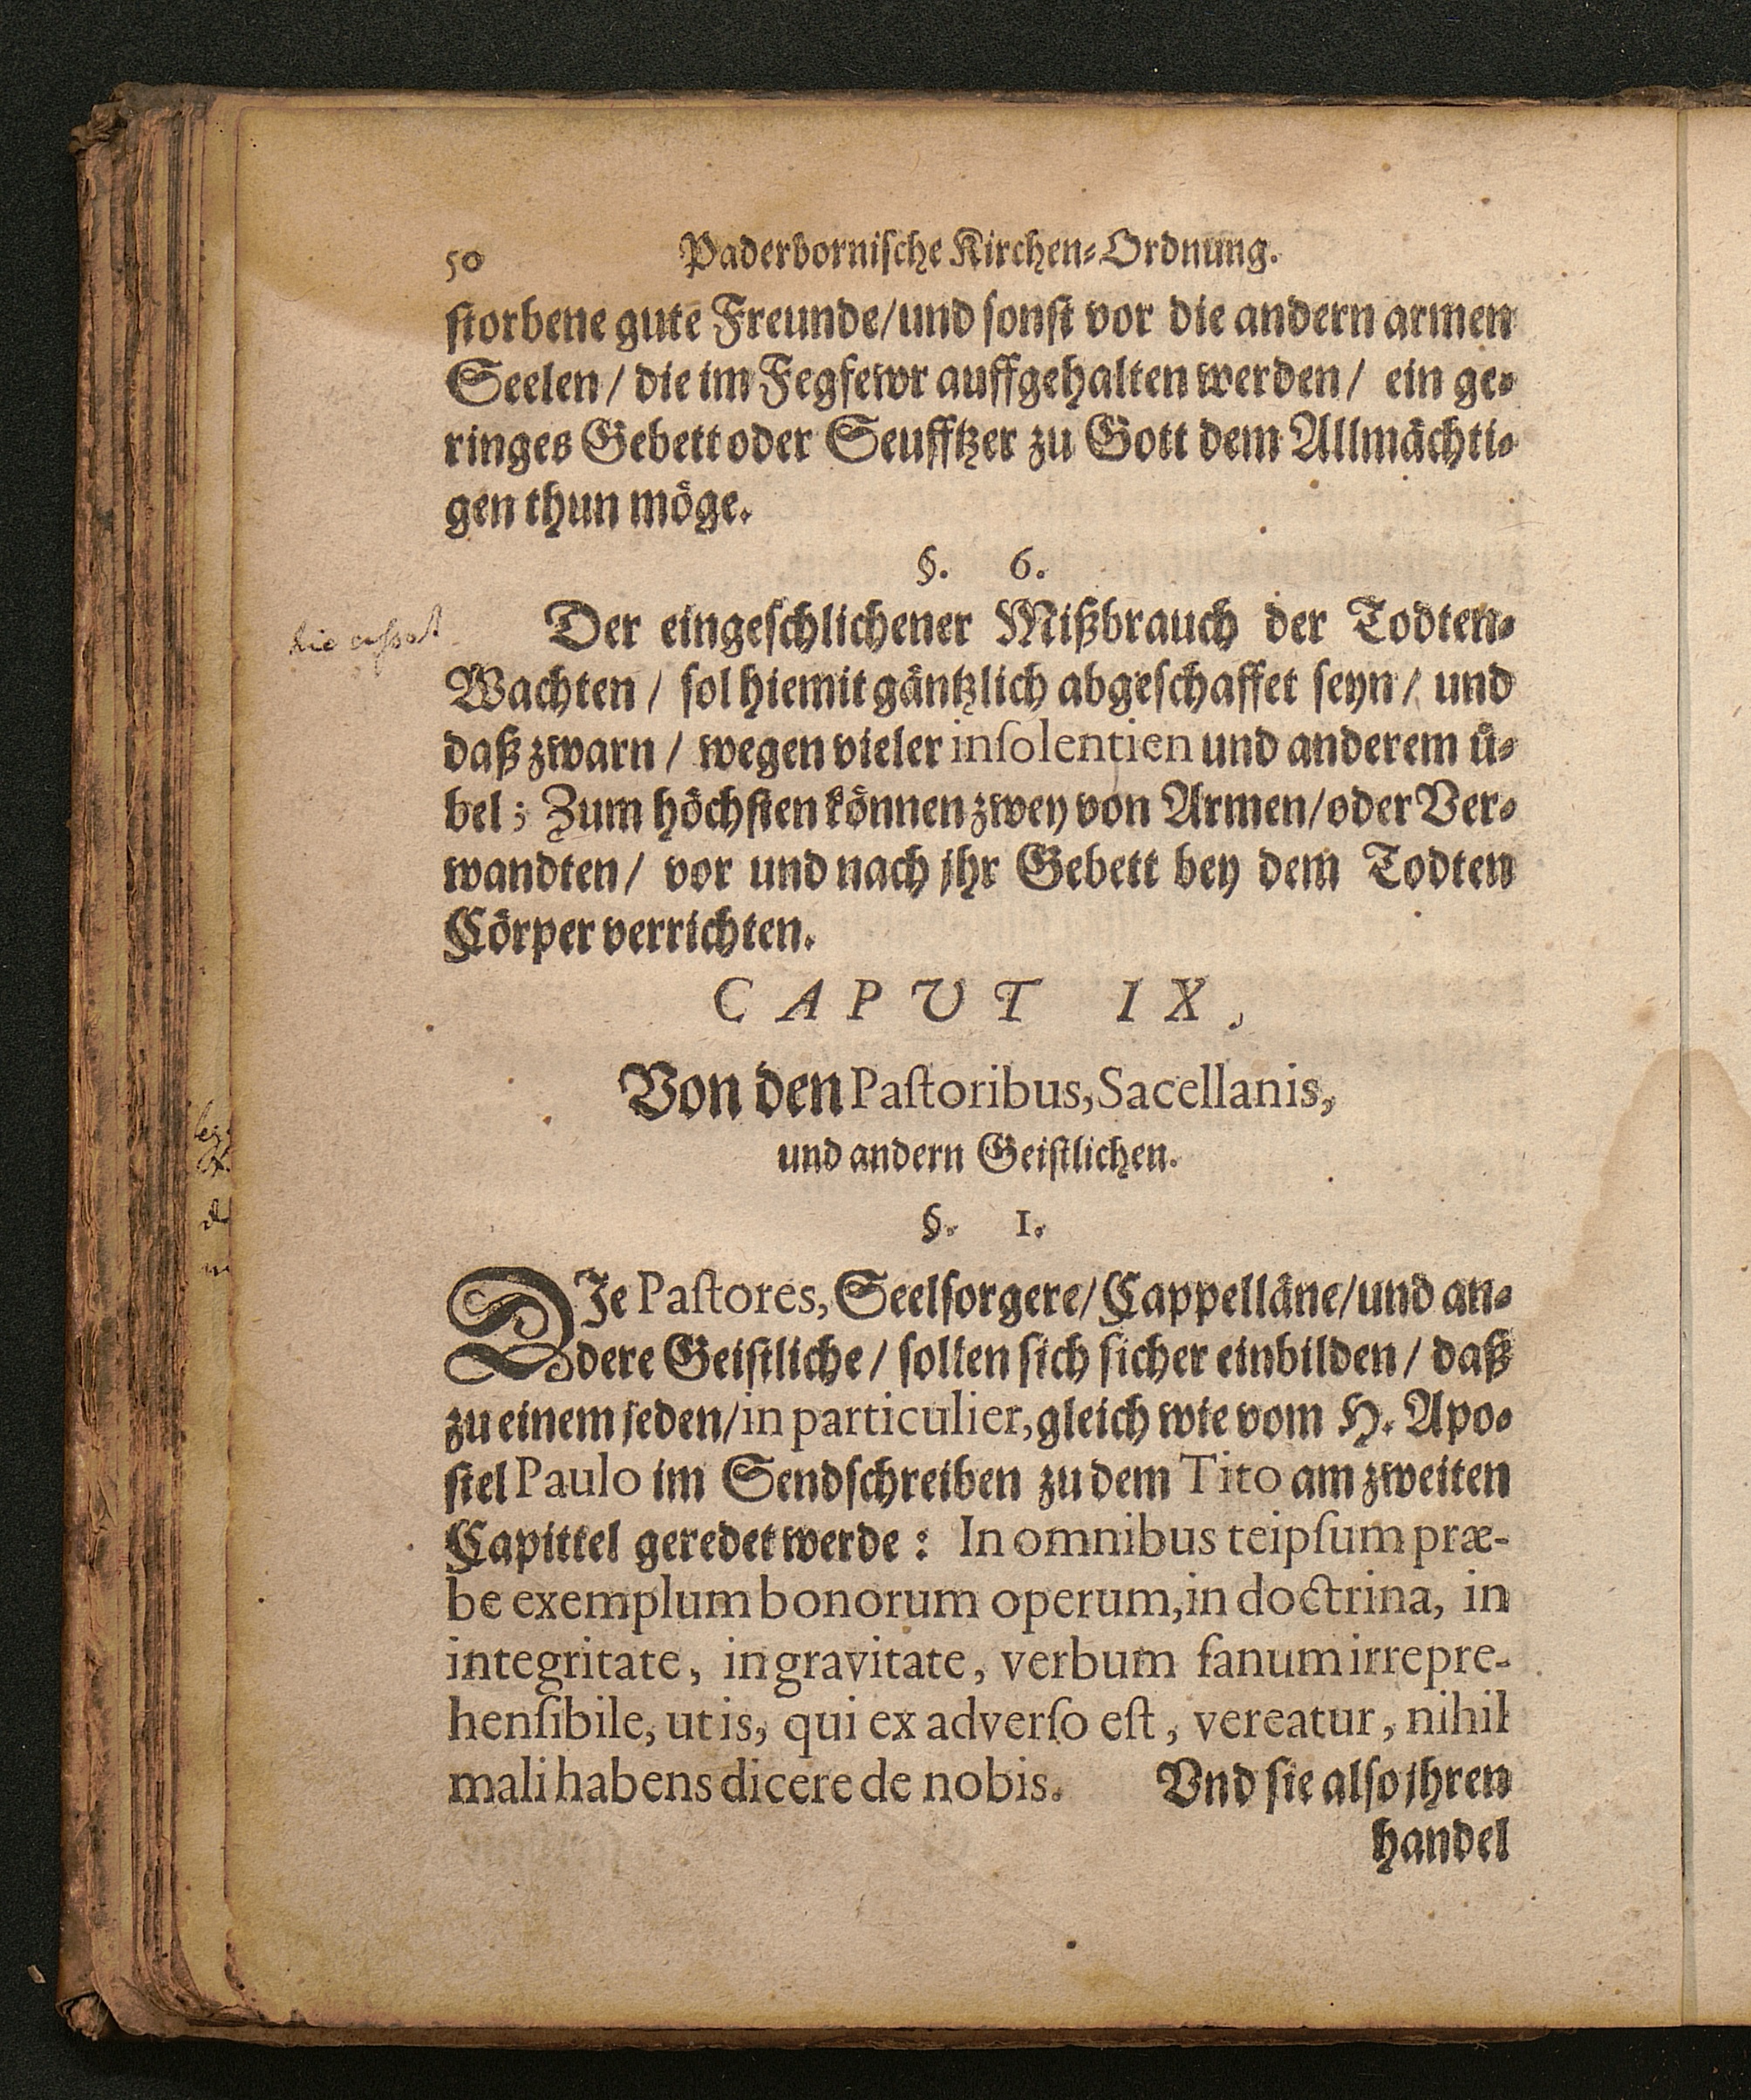 50 Paderbornische Kirchen-Ordnung.
storbene gute Freunde/und sonst vor die andern armen
Seelen/ die im Fegfewr auffgehalten werden/ ein ge-
ringes Gebett oder Seufftzer zu Gott dem Allmächti-
gen thun möge.
§. 6.
Der eingeschlichener Mißbrauch der Todten-
Wachten / sol hiemit gäntzlich abgeschaffet seyn / und
daß zwarn / wegen vieler inſolentien und anderem ü-
bel; Zum höchsten können zwey von Armen/oder Ver-
wandten/ vor und nach jhr Gebett bey dem Todten
Cörper verrichten.
CAPUT IX,
Von den Paſtoribus, Sacellanis,
und andern Geistlichen.
§. 1.
DJe Paſtores, Seelsorgere/Cappelläne/und an-
dere Geistliche / sollen sich sicher einbilden / daß
zu einem jeden/in particulier, gleich wie vom H. Apo-
stel Paulo im Sendschreiben zu dem Tito am zweiten
Capittel geredet werde: In omnibus teipſum præ-
be exemplum bonorum operum, in doctrina, in
integritate, in gravitate, verbum ſanum irrepre-
henſibile, ut is, qui ex adverſo eſt, vereatur, nihil
mali habens dicere de nobis. Vnd sie also jhren
handel